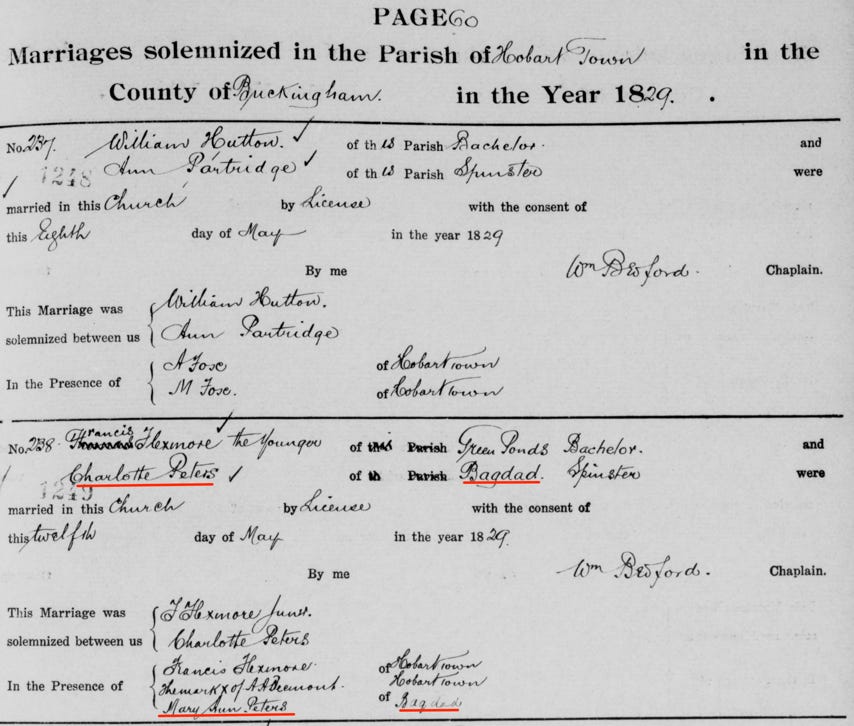 PAGE 60
Marriages solemnized in the Parish of Hobart Town in the
County of Buckingham. in the Year 1829.
No. 237. William Hutton. of this Parish Bachelor. and
1248 Ann Partridge of this Parish Spinster were
married in this Church by License with the consent of
this Eighth day of May in the year 1829
By me Wm Bedford. Chaplain.
This Marriage was William Hutton.
solemnized between us Ann Partridge
In the Presence of A Fose of Hobart Town
M Fose. of Hobart Town
No. 238. Francis Flexmore the Younger of Parish Green Ponds Bachelor. and
Charlotte Peters of th Parish Bagdad. Spinster were
1249
married in this Church by License with the consent of
this twelfth day of May in the year 1829.
By me Wm Bedford. Chaplain.
This Marriage was F Flexmore Junr.
solemnized between us Charlotte Peters
Francis Flexmore. of Hobart Town
In the Presence of The mark x of A A Beemont. Hobart Town
Mary Ann Peters of Bagdad